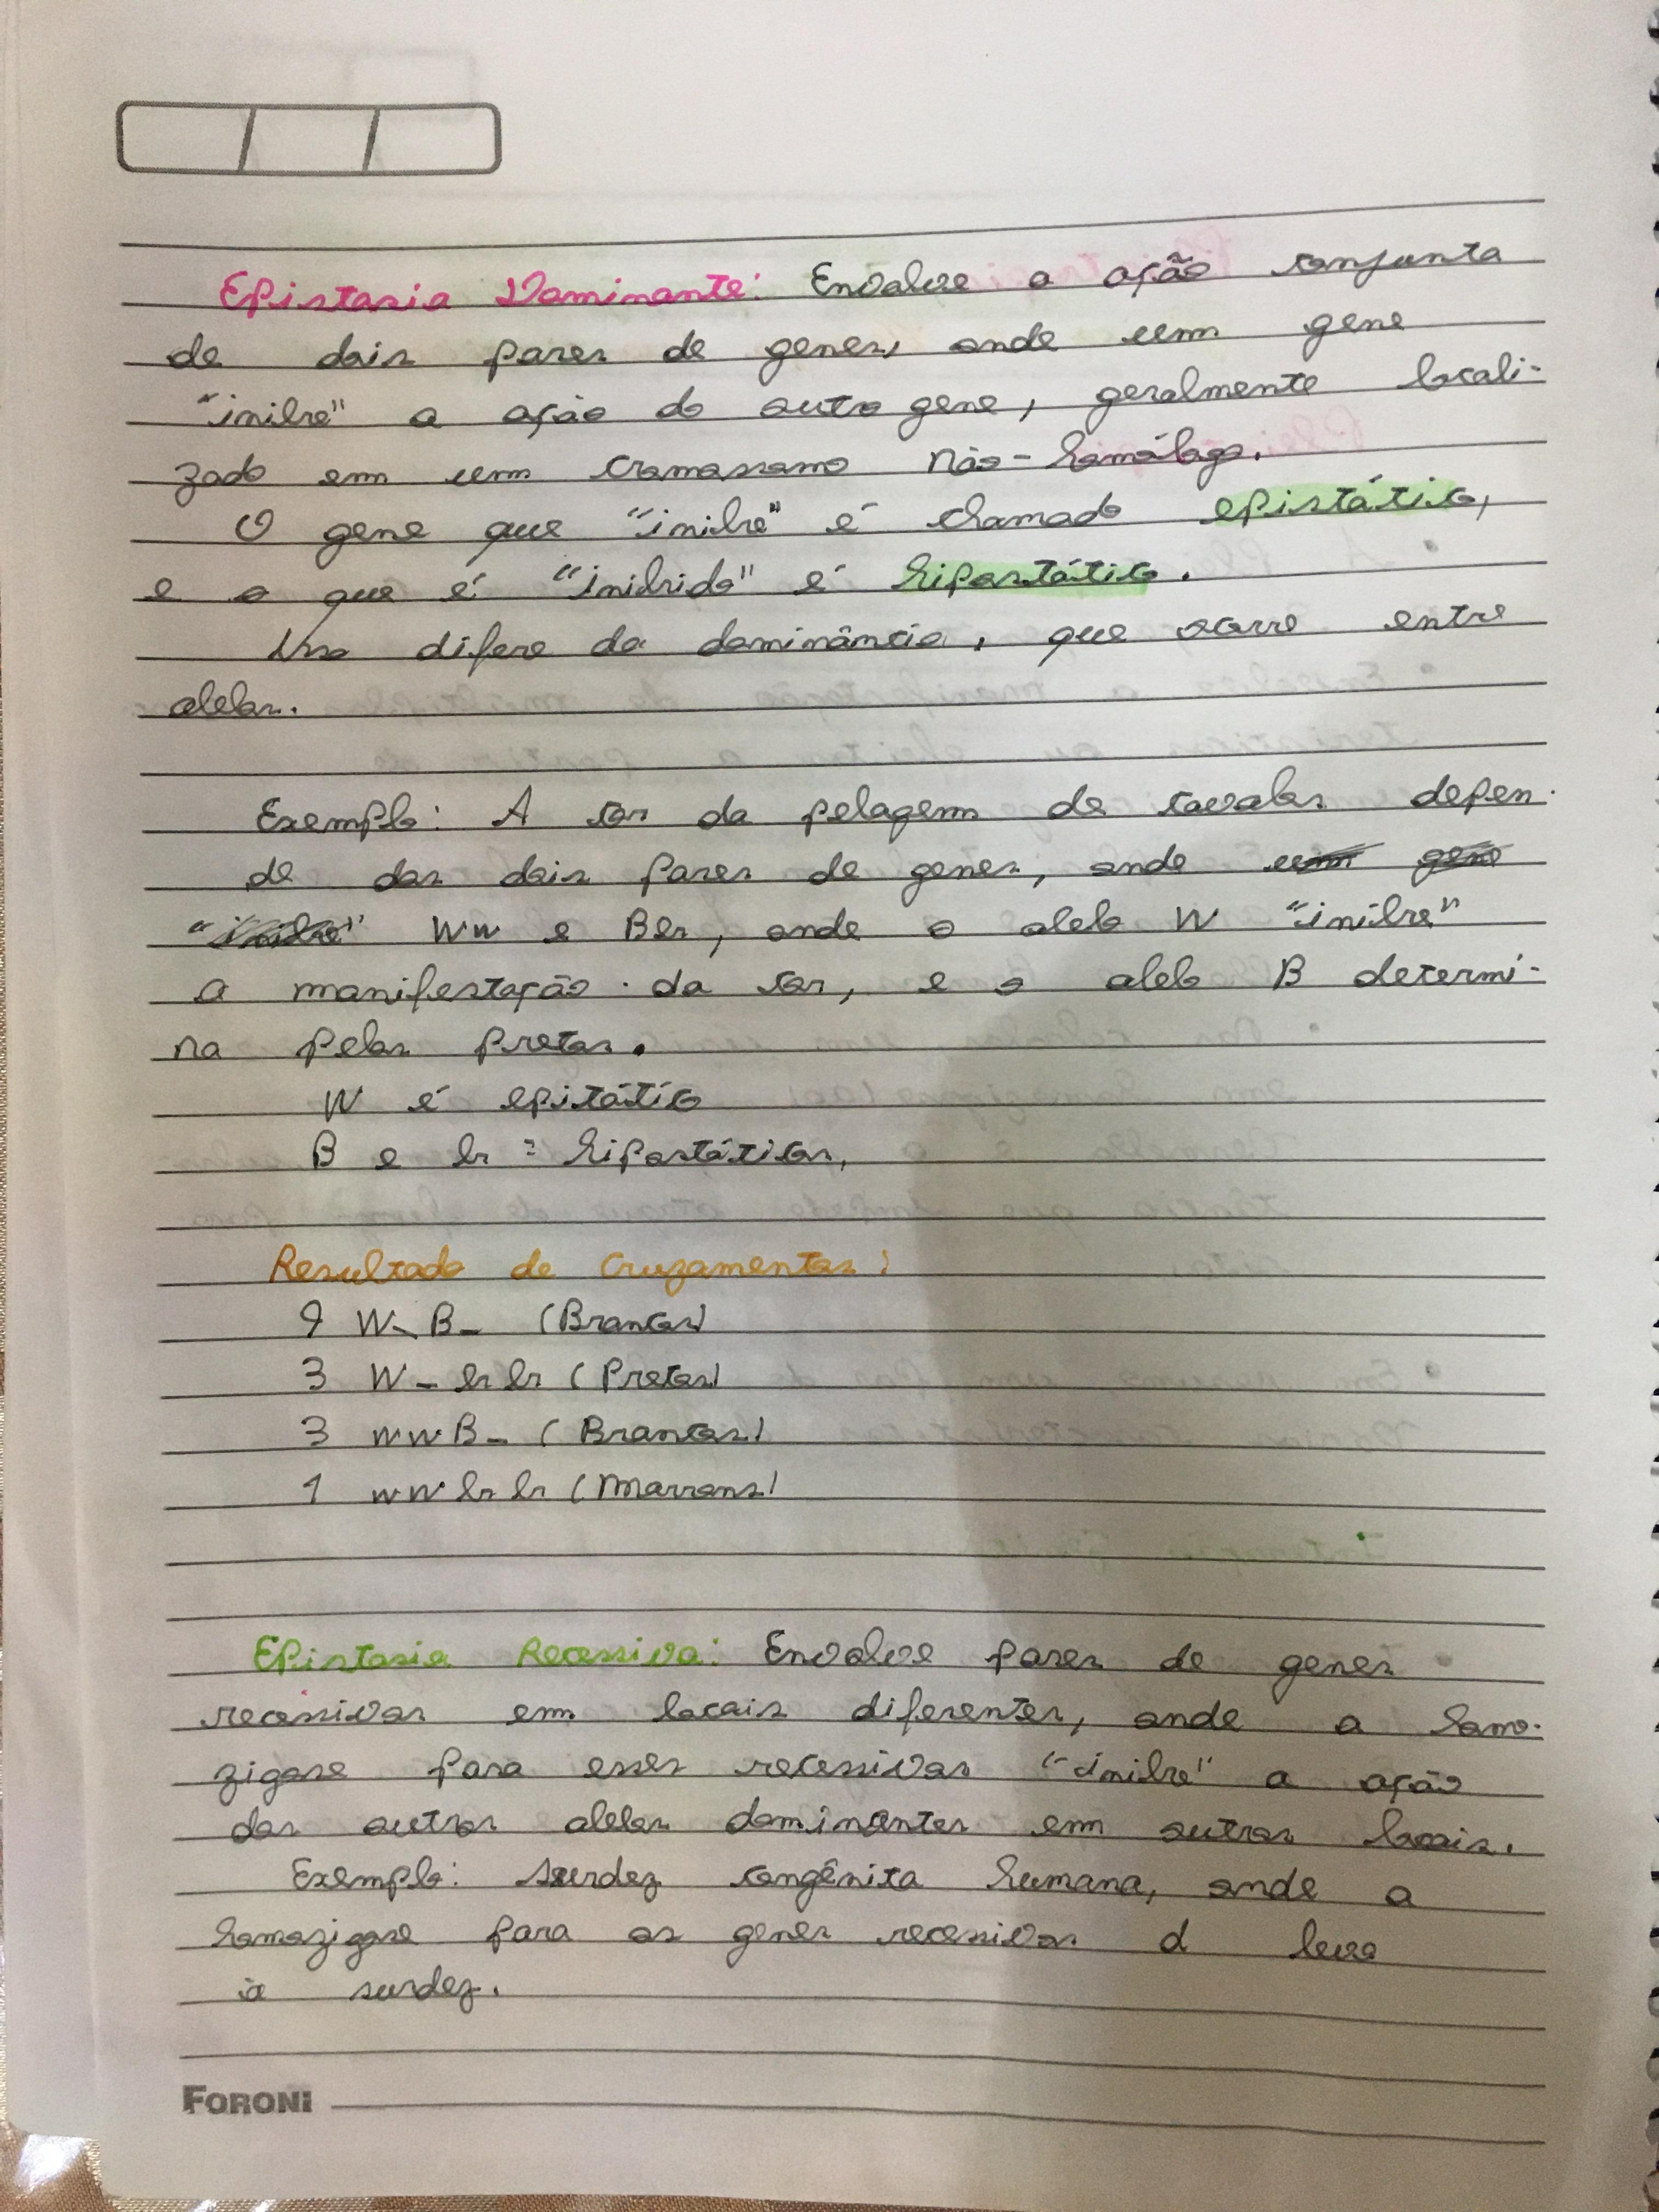 Epistasia Dominante: Envolve a ação conjunta
de dois pares de genes, onde um gene
"inibe" a ação do outro gene, geralmente locali-
zado em um cromossomo não-homólogo.
O gene que "inibe" é chamado epistático,
e o que é "inibido" é hipostático.
Isso difere da dominância, que ocorre entre
alelos.
Exemplo: A cor da pelagem de cavalos depen-
de dos dois pares de genes, onde um gene
"inibe" Ww e Bb, onde o alelo W "inibe"
a manifestação da cor, e o alelo B determi-
na pelos pretos.
W é epitático
B e b = hipostáticos,
Resultado de Cruzamentos:
9 W_B_ (Brancos)
3 W_bb (Pretos)
3 wwB_ (Brancos)
1 wwbb (Marrons)
Epistasia Recessiva: Envolve pares de genes
recessivos em locais diferentes, onde a homo-
zigose para esses recessivos "inibe" a ação
dos outros alelos dominantes em outros locais.
Exemplo: Surdez congênita humana, onde a
homozigose para os genes recessivos d leva
à surdez.
FORONI